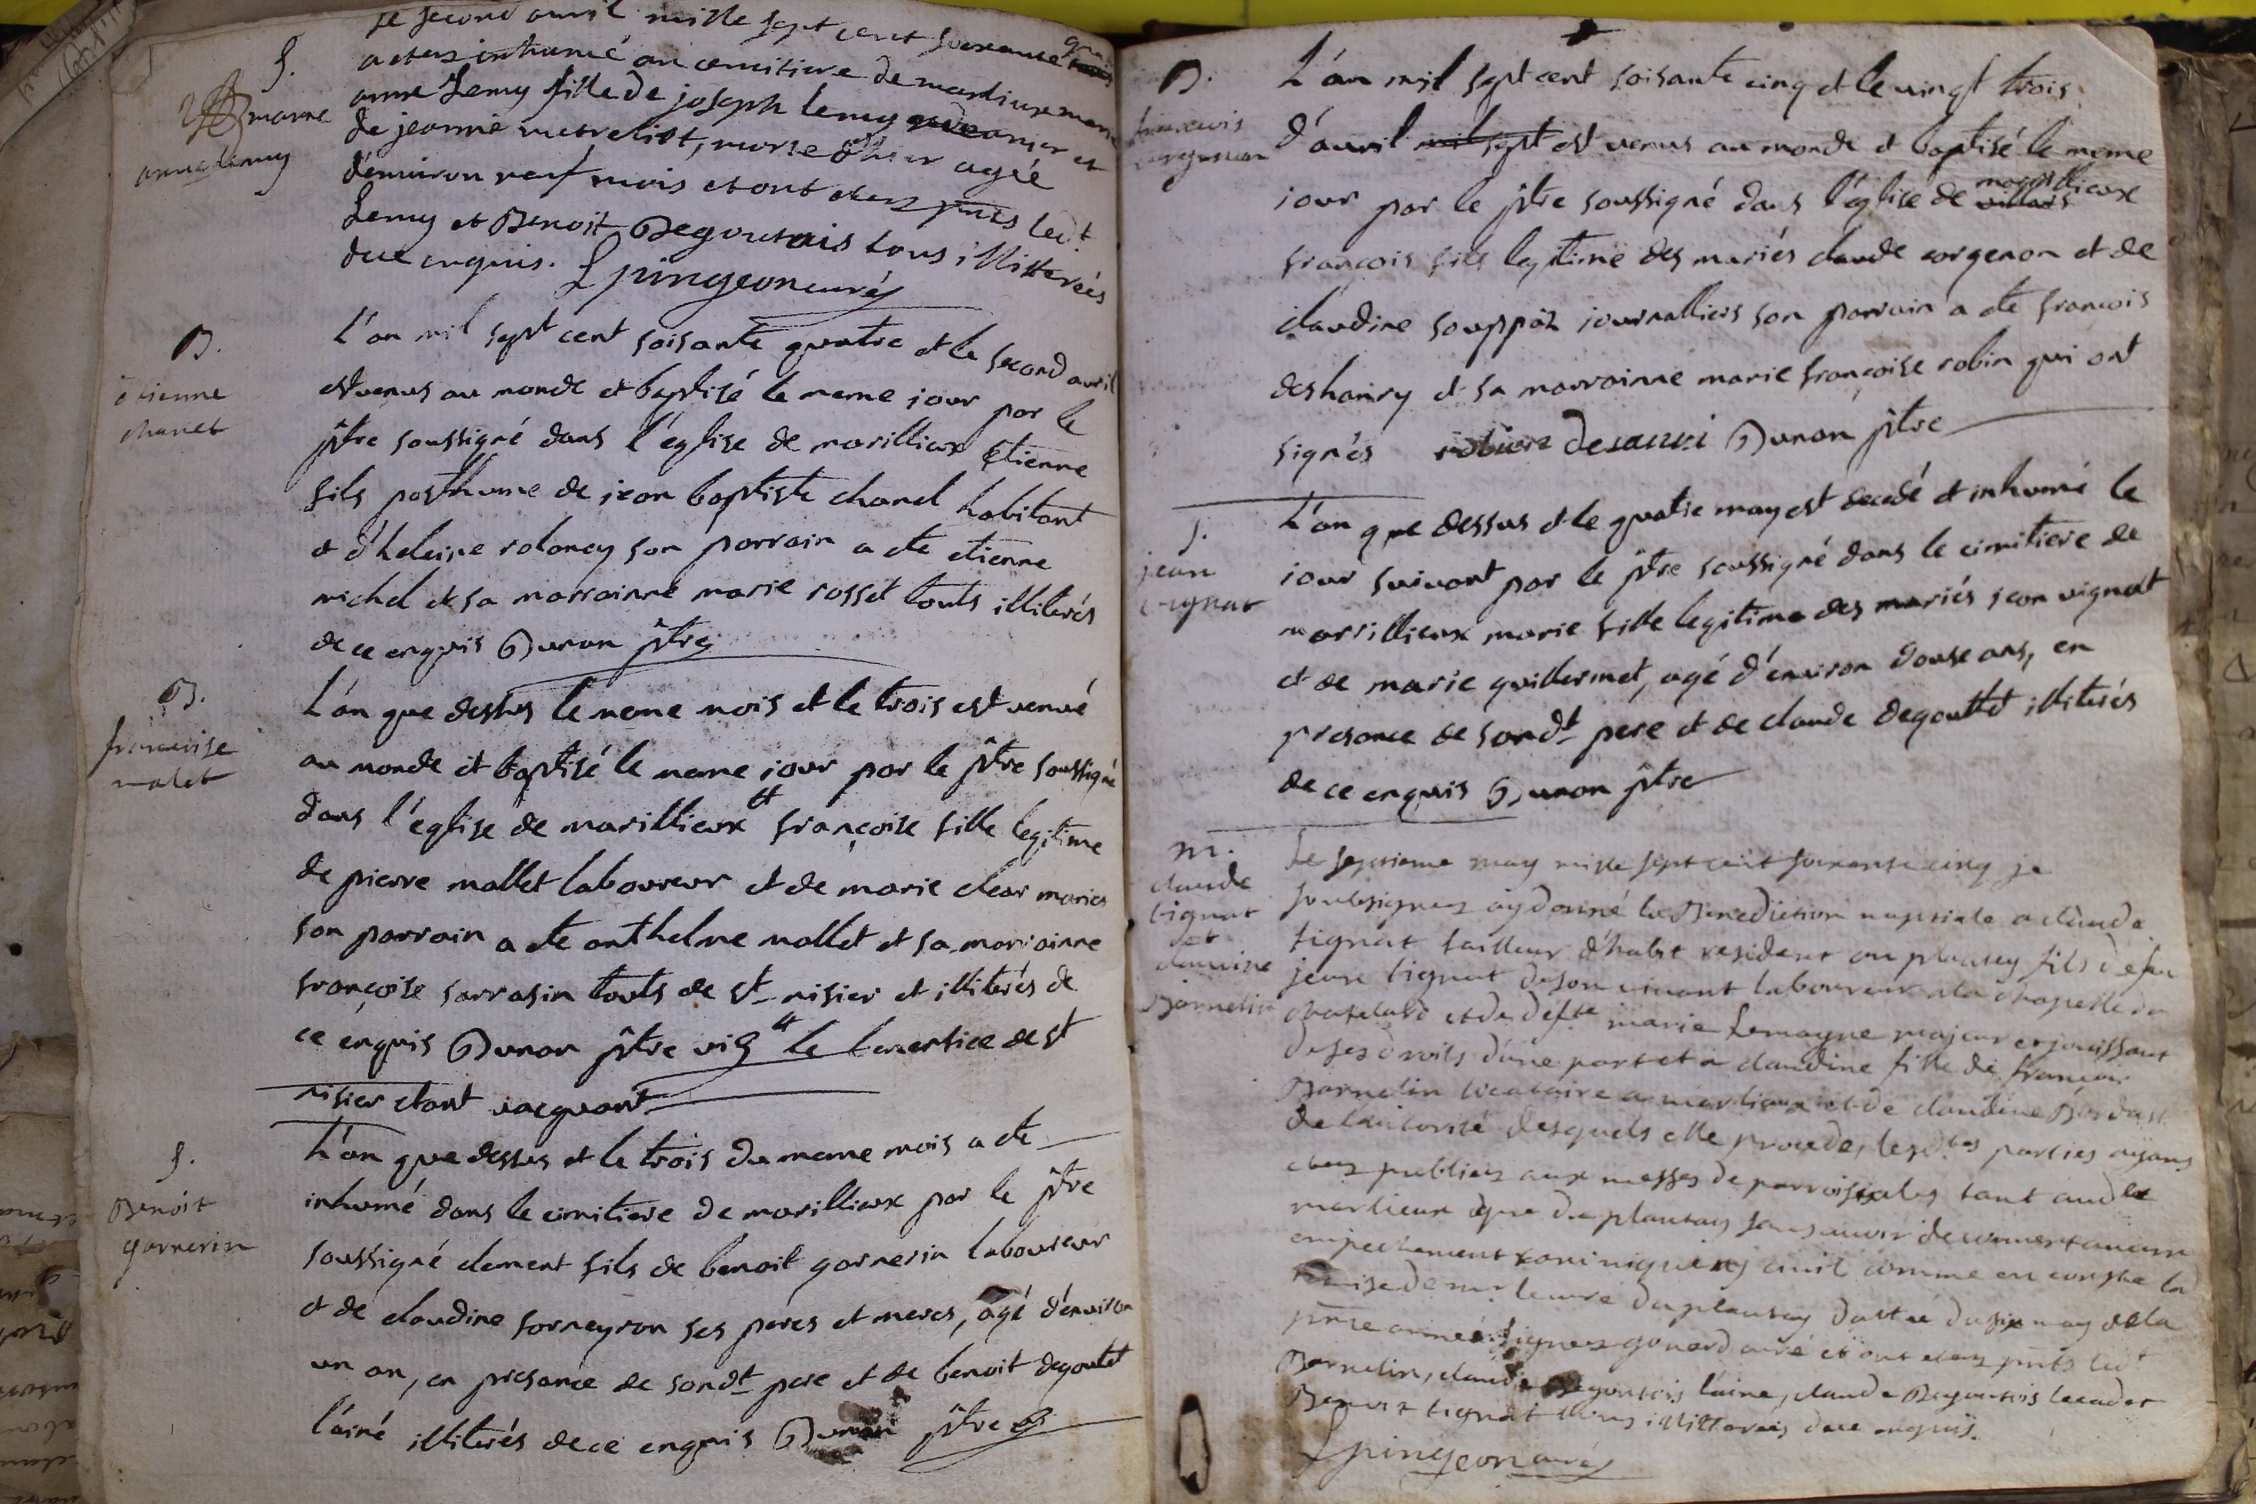 S.
marie
anne Lemy
Le second avril mille sept cent soixante
a etez inhumé au cemitiere de marlieux marie
anne Lemy fille de joseph lemy et
de jeanne, morte d'hier agée
d'environ neuf mois et ont etez pnts ledt
Lemy et Benoit Degoutois tous illitterés
de ce enquis. Lpingeon curé
B.
etienne
chanel
L'an mil sept cent soisante quatre et le second avril
est venus au monde et baptisé le meme jour par le
ptre soussigné dans l'eglise de marillieux Etienne
fils posthume de jean baptiste chanel habitant
et d'heleine rolancy son parrain a ete etienne
michel et sa marrainne marie rosset touts illiterés
de ce enquis Dunan ptre
B.
francoise
malet
L'an que dessus le meme mois et le trois est venué
au monde et baptisé le meme jour par le ptre soussigné
dans l'eglise de marillieux françoise fille legitime
de pierre mallet laboureur et de marie clear mariés
son parrain a ete anthelme mallet et sa marrainne
françoise sarrasin touts de st nisier et illiterés de
ce enquis Dunan ptre le benefice de st
nisier etant vacquant
S.
Benoit
garnerin
L'an que dessus et le trois du meme mois a ete
inhumé dans le cimitiere de marillieux par le ptre
soussigné clement fils de benoit garnerin laboureur
et de claudine sorneyron ses peres et meres, agé d'environ
un an, en presance de sondt pere et de benoit degoutet
l'ainé illiterés de ce enquis Dunan ptre
B.
francois
corgenon
L'an mil sept cent soisante cinq et le vingt trois
d'avril mil sept est venus au monde et baptisé le meme
jour par le ptre soussigné dans l'église de villars marillieux
francois fils legitime des mariés claude corgenon et de
claudine souppöz journalliers son parrain a ete francois
deshanry et sa marrainne marie françoise robin qui ont
signés robiere desanri Dunan ptre
S.
jean
vignat
L'an que dessus et le quatre may est decedé et inhumé le
jour suivant par le ptre soussigné dans le cimitiere de
marrillieux marie fille legitime des mariés jean vignat
et de marie guillermet, agé d'environ douse ans, en
presance de sondt pere et de claude degouttet illiterés
de ce enquis Dunan ptre
m.
claude
tignat
et
claudine
Bornelin
Le septieme may mille sept cent soixante cinq je
soubsignez ay donné la Benediction nuptiale a claude
tignat tailleur d'habit resident au plantay fils de feu
jeane tignat de son vivant laboureur a la chapelle du
chatelard et de deffte marie Lemoyne majeur et jouissant
de ses droits d'une part et a claudine fille de françois
Bornelin locataire a marlieux et de claudine
de l'autorité desquels elle procede, lesdtes parties ayans
etez publiez aux messes de parroissiales tant audt
marlieux que du plantay sans avoir decouvert aucun
empechement canonique ny civil comme en conste la
remise de mr le curé du plantay dattée du six may de la
pnte année signez gonard curé et ont etez pnts ledt
Bornelin, claude Degoutois l'ainé, claude Degoutois le cadet
Benoit tignat tous illitterés de ce enquis.
Lpingeon curé